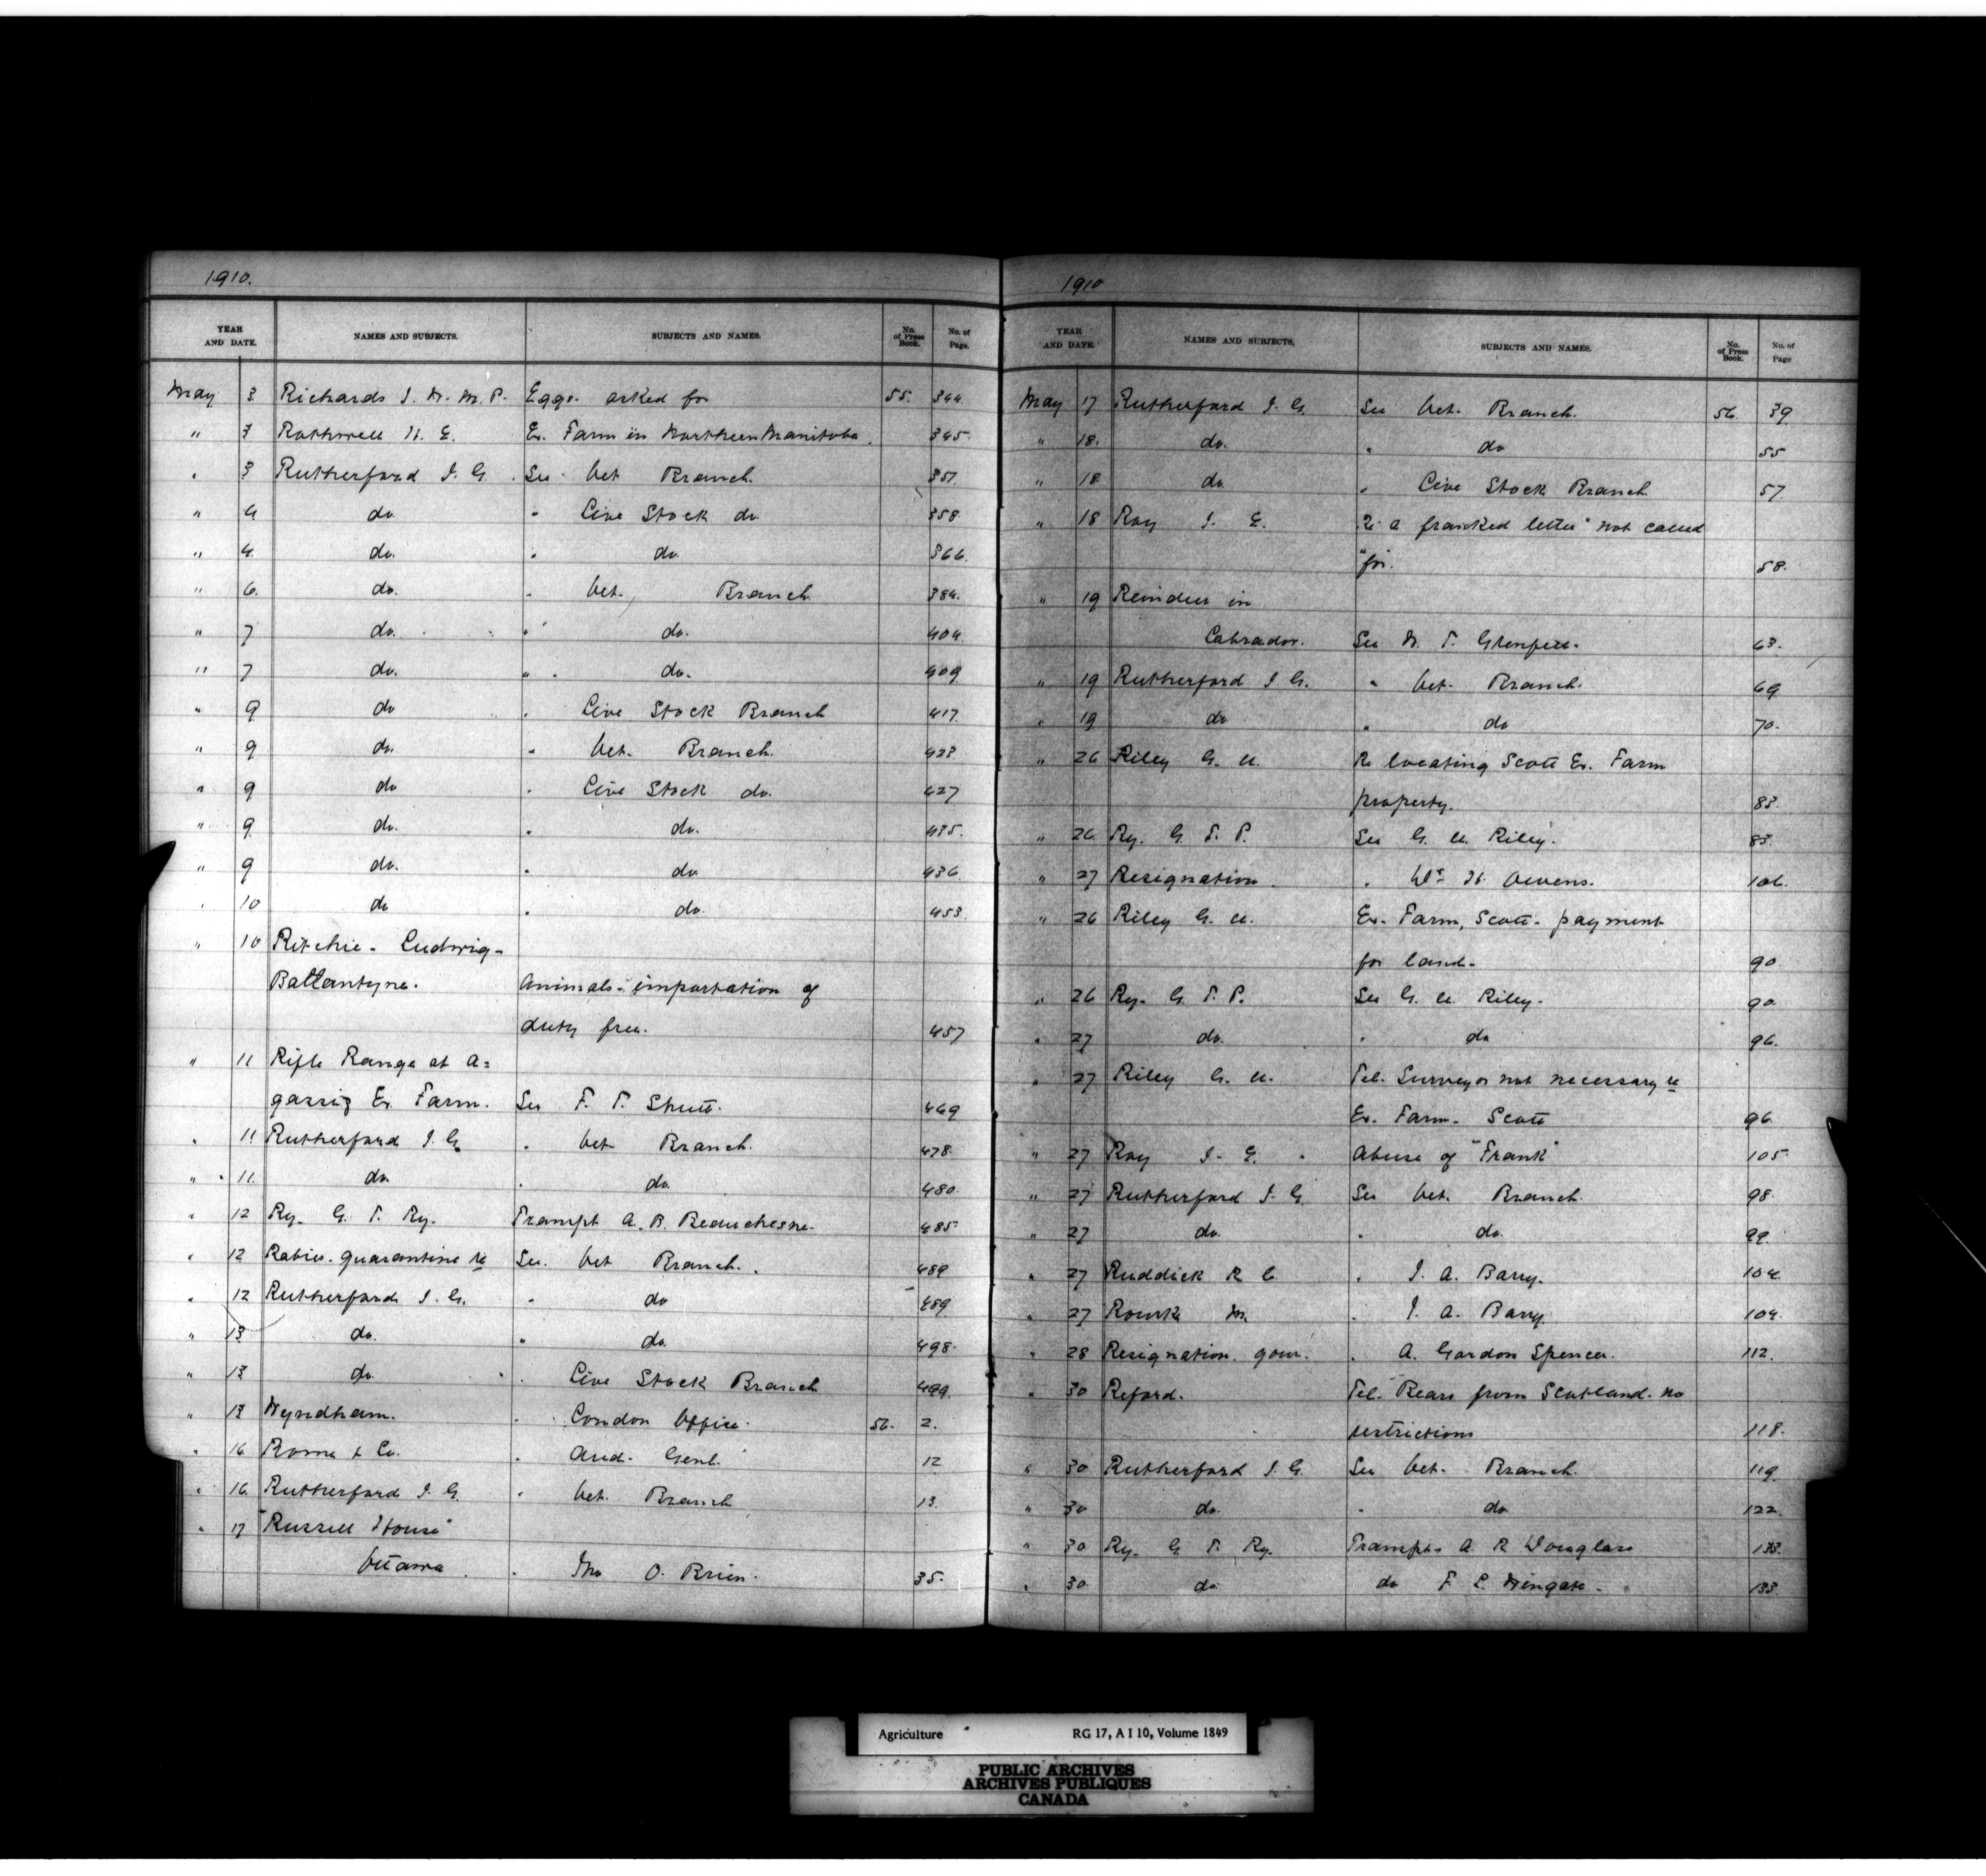 1910.
YEAR AND DATE. NAMES AND SUBJECTS. SUBJECTS AND NAMES. No. of Press Book. No. of Page.
May 3 Richards J. W. M. P. Eggs. asked for 55. 344.
" 3 Rothwell H. E. Ex. Farm in Northern Manitoba. 345.
" 3 Rutherford J. G. See Vet Branch. 357.
" 4 do. " Live Stock do. 358
" 4. do. " do. 366.
" 6. do. " Vet. Branch 384.
" 7 do. " do. 404.
" 7 do. " do. 409
" 9 do " Live Stock Branch 417.
" 9 do. " Vet. Branch. 423.
" 9 do " Live Stock do. 427
" 9 do. " do. 435.
" 9 do. " do. 436.
" 10 do " do. 453.
" 10 Ritchie - Ludwig -
Ballantyne. Animals - importation of
duty free. 457
" 11 Rifle Range at A=
gassiz Ex. Farm. See F. T. Shutt. 469
" 11 Rutherford J. G. " Vet Branch. 478.
" 11. do. " do. 480.
" 12 Ry. G. T. Ry. Transpt A. B. Beauchesne. 485.
" 12 Rabies. quarantine re See. Vet Branch. 489
" 12 Rutherford J. G. " do 489.
" 13 do. " do. 498.
" 13 do. " Live Stock Branch 499.
" 13 Wyndham. " London Office. 56. 2.
" 16 Roma & Co. " Aud. Genl. 12
" 16. Rutherford J. G. " Vet. Branch 13.
" 17 "Russell House"
Ottawa. " Jno O. Brien. 35.
1910
YEAR AND DATE. NAMES AND SUBJECTS. SUBJECTS AND NAMES. No. of Press Book. No. of Page
May 17 Rutherford J. G. See Vet. Branch. 56. 39.
" 18. do. " do 55
" 18 do. " Live Stock Branch 57.
" 18 Roy J. E. Re a franked letter "not called
"for. 58.
" 19 Reindeer in
Labrador. See W. T. Grenfell. 63.
" 19 Rutherford J G. " Vet. Branch. 69
" 19 do " do 70.
" 26 Riley G. U. Re locating Scott Ex. Farm
property. 83.
" 26 Ry. G. T. P. See G. U. Riley. 83.
" 27 Resignation. " Wm H. Owens. 106.
" 26 Riley G. U. Ex. Farm, Scott - payment
for land. 90.
" 26 Ry. G. T. P. See G. U. Riley. 90.
" 27 do. " do 96.
" 27 Riley G. U. Tel. Surveyor not necessary re
Ex. Farm. Scott 96.
" 27 Roy J. E. Abuse of "Frank" 105.
" 27 Rutherford J. G. See Vet. Branch. 98.
" 27 do. " do. 99.
" 27 Ruddick R C. " J. A. Barry. 104.
" 27 Rourke M. " J. A. Barry 104.
" 28 Resignation. gour. " A. Gordon Spencer. 112.
" 30 Reford. Tel. Bears from Scotland. no
restrictions 118.
" 30 Rutherford J. G. See Vet. Branch. 119.
" 30 do. " do 122.
" 30 Ry. G. T. Ry. Transpt. A. R Douglass 133.
" 30. do. do F. L. Wingate. 133.
Agriculture RG 17, A I 10, Volume 1849
PUBLIC ARCHIVES
ARCHIVES PUBLIQUES
CANADA